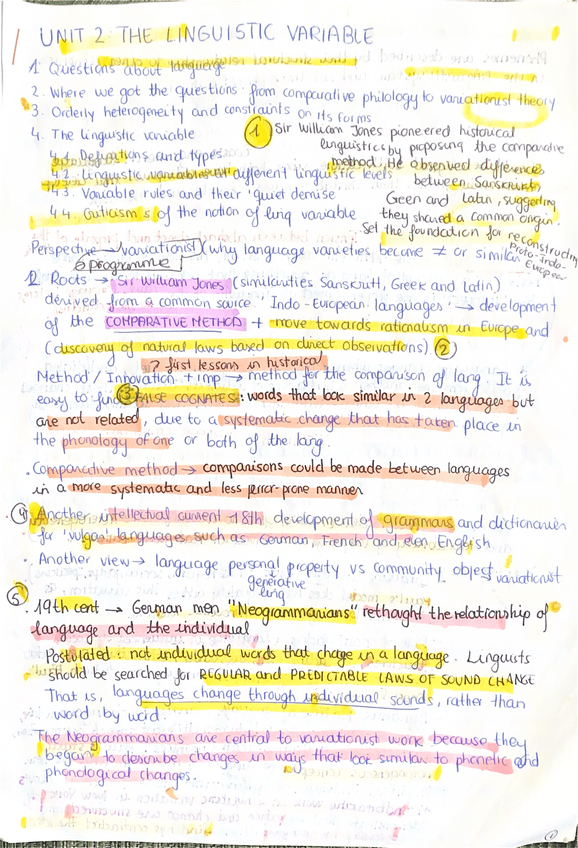 UNIT 2 THE LINGUISTIC VARIABLE
1. Questions about language
2. Where we got the questions: from comparative philology to variationist theory
3. Orderly heterogeneity and constraints on its forms
4. The linguistic variable
4.1. Definitions and types
4.2. Linguistic variables at different linguistic levels
4.3. Variable rules and their 'quiet demise'
4.4. Criticisms of the notion of ling variable
① Sir William Jones pioneered historical
linguistics by proposing the comparative
method. He observed differences
between Sanskrit,
Green and Latin, suggesting
they shared a common origin.
Set the foundation for reconstructing
Proto-Indo-
European
Perspective → variationist (why language varieties become ≠ or similar
programme
2. Roots → Sir William Jones (similarities Sanskrit, Greek and Latin)
derived from a common source 'Indo-European languages' → development
of the COMPARATIVE METHOD + move towards rationalism in Europe and
(discovery of natural laws based on direct observations) ②
? first lessons in historical
Method / Innovation + imp → method for the comparison of lang. It is
easy to find ③ FALSE COGNATES: words that look similar in 2 languages but
are not related, due to a systematic change that has taken place in
the phonology of one or both of the lang.
. Comparative method → comparisons could be made between languages
in a more systematic and less error-prone manner
④ Another intellectual current 18th development of grammars and dictionaries
for 'vulgar' languages such as German, French, and even English
. Another view → language personal property vs community object
generative
ling
variationist
⑤ . 19th cent → German men "Neogrammarians" rethought the relationship of
language and the individual
Postulated: not individual words that chage in a language. Linguists
should be searched for REGULAR and PREDICTABLE LAWS OF SOUND CHANGE
That is, languages change through individual sounds, rather than
word by word.
The Neogrammarians are central to variationist work because they
began to describe changes in ways that look similar to phonetic and
phonological changes.